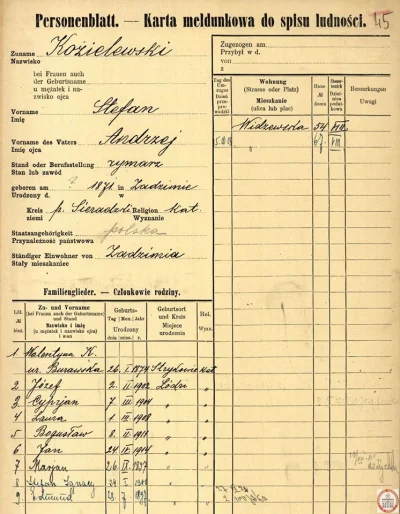 Personenblatt. — Karta meldunkowa do spisu ludności. 45
Zuname
Nazwisko
Kozielewski
bei Frauen auch der Geburtsname
u mężatek i nazwisko ojca
Vorname
Imię
Stefan
Vorname des Vaters
Imię ojca
Andrzej
Stand oder Berufsstellung
Stan lub zawód
rymarz
geboren am ? 1871 in Zadzimie
Urodzony d. w
Kreis p. Sieradzki Religion kat.
ziemi Wyznanie
Staatsangehörigkeit
Przynależność państwowa
polska
Ständiger Einwohner von
Stały mieszkaniec
Zadzimia
Zugezogen am
Przybył w d.
von
z
Wohnung
(Strasse oder Platz)
Mieszkanie
(ulica lub plac)
Bemerkungen
Uwagi
Widzewska 54 VIII
67 VIII
Familienglieder. — Członkowie rodziny.
Zu- und Vorname
(bei Frauen auch der Geburtsname und Stand
Nazwisko i imię
(u mężatek i nazwisko ojca)
i stan
Geburts-
Tag | Mon. | Jahr
Urodzony
dnia | mies. | r.
Geburtsort
und Kreis
Miejsce
urodzenia
Rel.
Wyzn.
1 Walentyna K.
ur. Burawska 26 I 1874 Strykowie kat
2 Józef 2 II 1902 Łodzi "
3 Cyprjan 7 III 1904 " "
4 Laura 1 III 1908 " "
5 Bogusław 8 II 1911 " "
6 Jan 24 IV 1914 " "
7 Marjan 26 II 1897 " "
8 Stefan Ignacy
9 Edmund